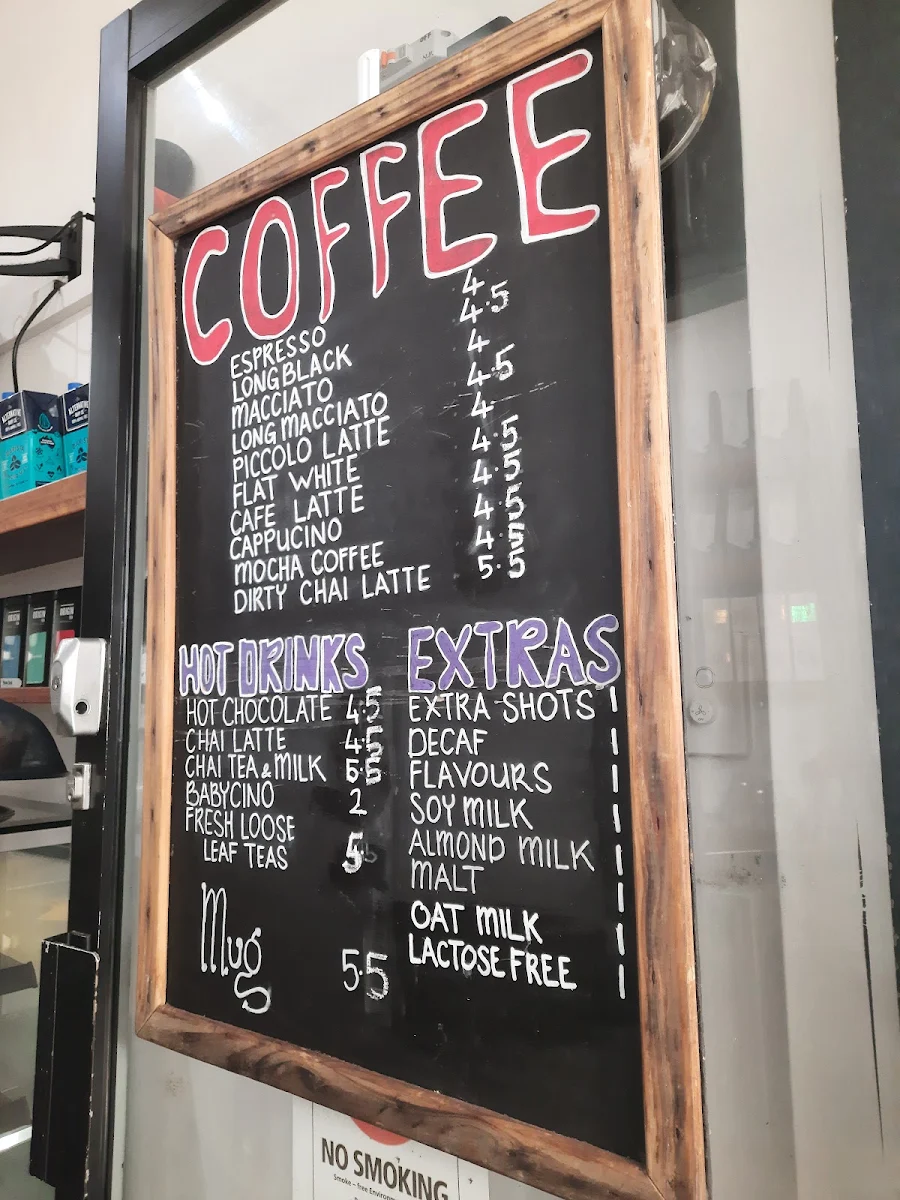 COFFEE
ESPRESSO 4
LONG BLACK 4.5
MACCIATO 4
LONG MACCIATO 4.5
PICCOLO LATTE 4
FLAT WHITE 4.5
CAFE LATTE 4.5
CAPPUCINO 4.5
MOCHA COFFEE 4.5
DIRTY CHAI LATTE 5.5
HOT DRINKS
HOT CHOCOLATE 4.5
CHAI LATTE 4.5
CHAI TEA & MILK 5.5
BABYCINO 2
FRESH LOOSE
LEAF TEAS 5
Mug 5.5
EXTRAS
EXTRA SHOTS 1
DECAF 1
FLAVOURS 1
SOY MILK 1
ALMOND MILK 1
MALT 1
OAT MILK 1
LACTOSE FREE 1
NO SMOKING